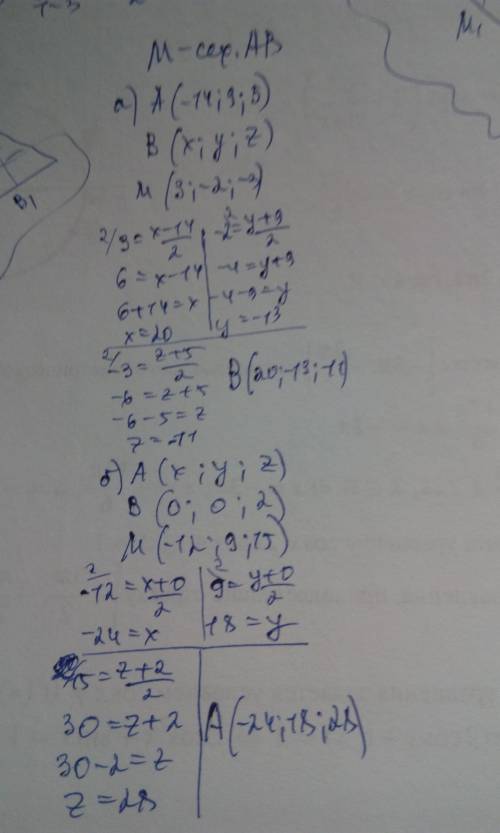 M₁
B₁
M - сер. AB
а) A (-14; 9; 5)
B (x; y; z)
M (3; -2; -3)
2/ 3 = x-14/2
6 = x-14
6+14 = x
x = 20
2/ -2 = y+9/2
-4 = y+9
-4-9 = y
y = -13
2/ -3 = z+5/2
-6 = z+5
-6-5 = z
z = -11
B (20; -13; -11)
б) A (x; y; z)
B (0; 0; 2)
M (-12; 9; 15)
2/ -12 = x+0/2
-24 = x
2/ 9 = y+0/2
18 = y
15 = z+2/2
30 = z+2
30-2 = z
z = 28
A (-24; 18; 28)